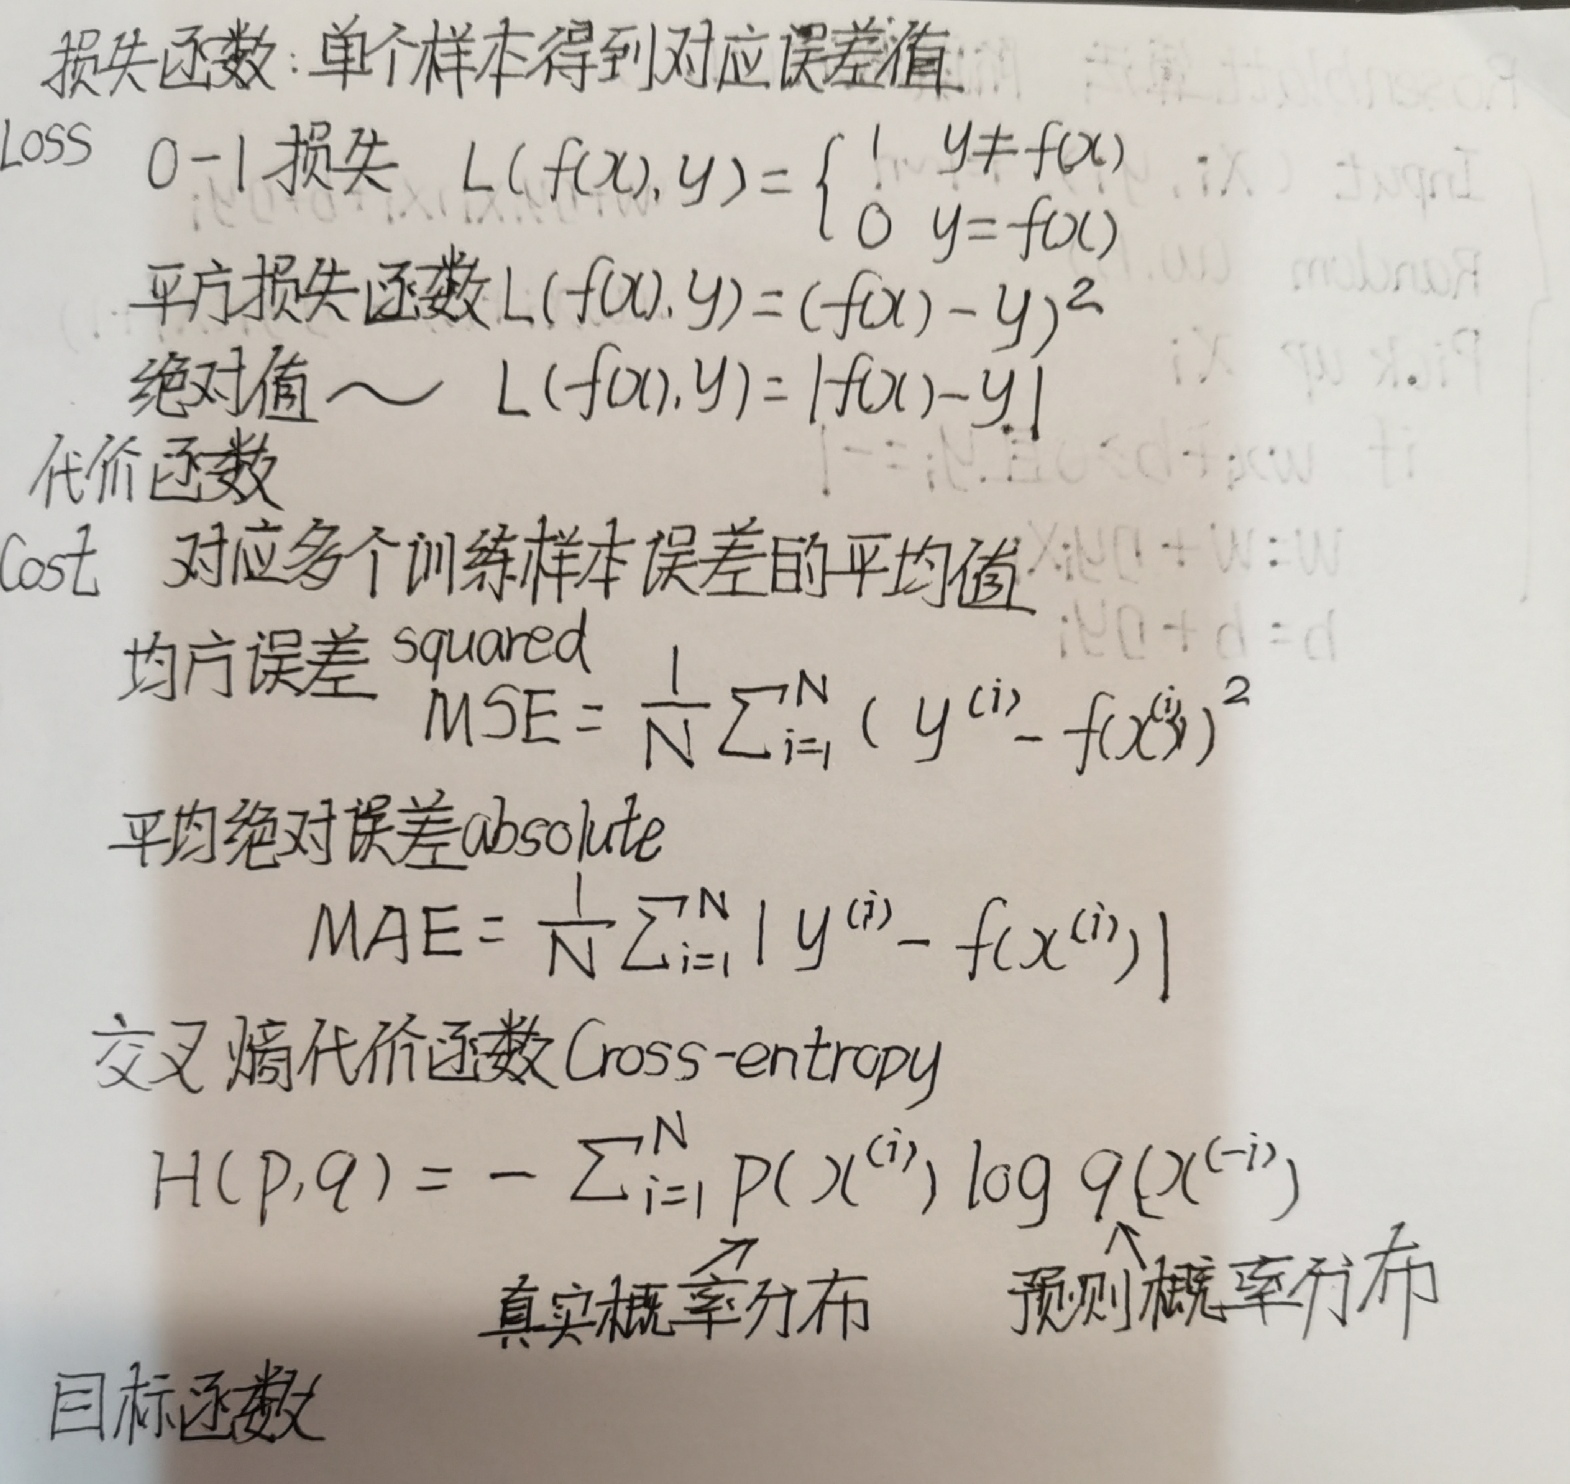 损失函数：单个样本得到对应误差值
Loss 0-1损失 L(f(x),y)={1 y≠f(x)
0 y=f(x)
平方损失函数L(f(x),y)=(f(x)-y)²
绝对值～ L(f(x),y)=|f(x)-y|
代价函数
Cost 对应多个训练样本误差的平均值
均方误差 squared
MSE = 1/N ∑_{i=1}^{N} (y^{(i)} - f(x^{(i)}))²
平均绝对误差absolute
MAE = 1/N ∑_{i=1}^{N} |y^{(i)} - f(x^{(i)})|
交叉熵代价函数Cross-entropy
H(p,q) = - ∑_{i=1}^{N} p(x^{(i)}) log q(x^{(-i)})
↗ ↖
真实概率分布 预测概率分布
目标函数